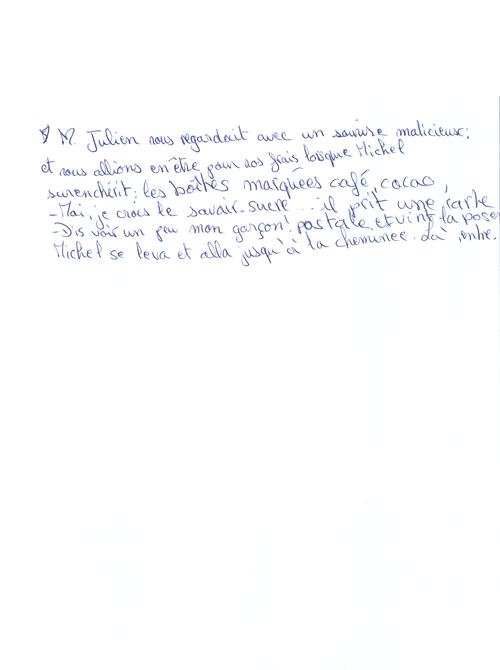 M. Julien nous regardait avec un sourire malicieux;
et nous allions en être pour nos frais lorsque Michel
surenchérit: les boîtes marquées café, cacao,
-Moi, je crois le savoir. sucre... il prit une carte
-Dis voir un peu mon garçon! postale, et vint la poser
Michel se leva et alla jusqu'à la cheminée. Là, entre.